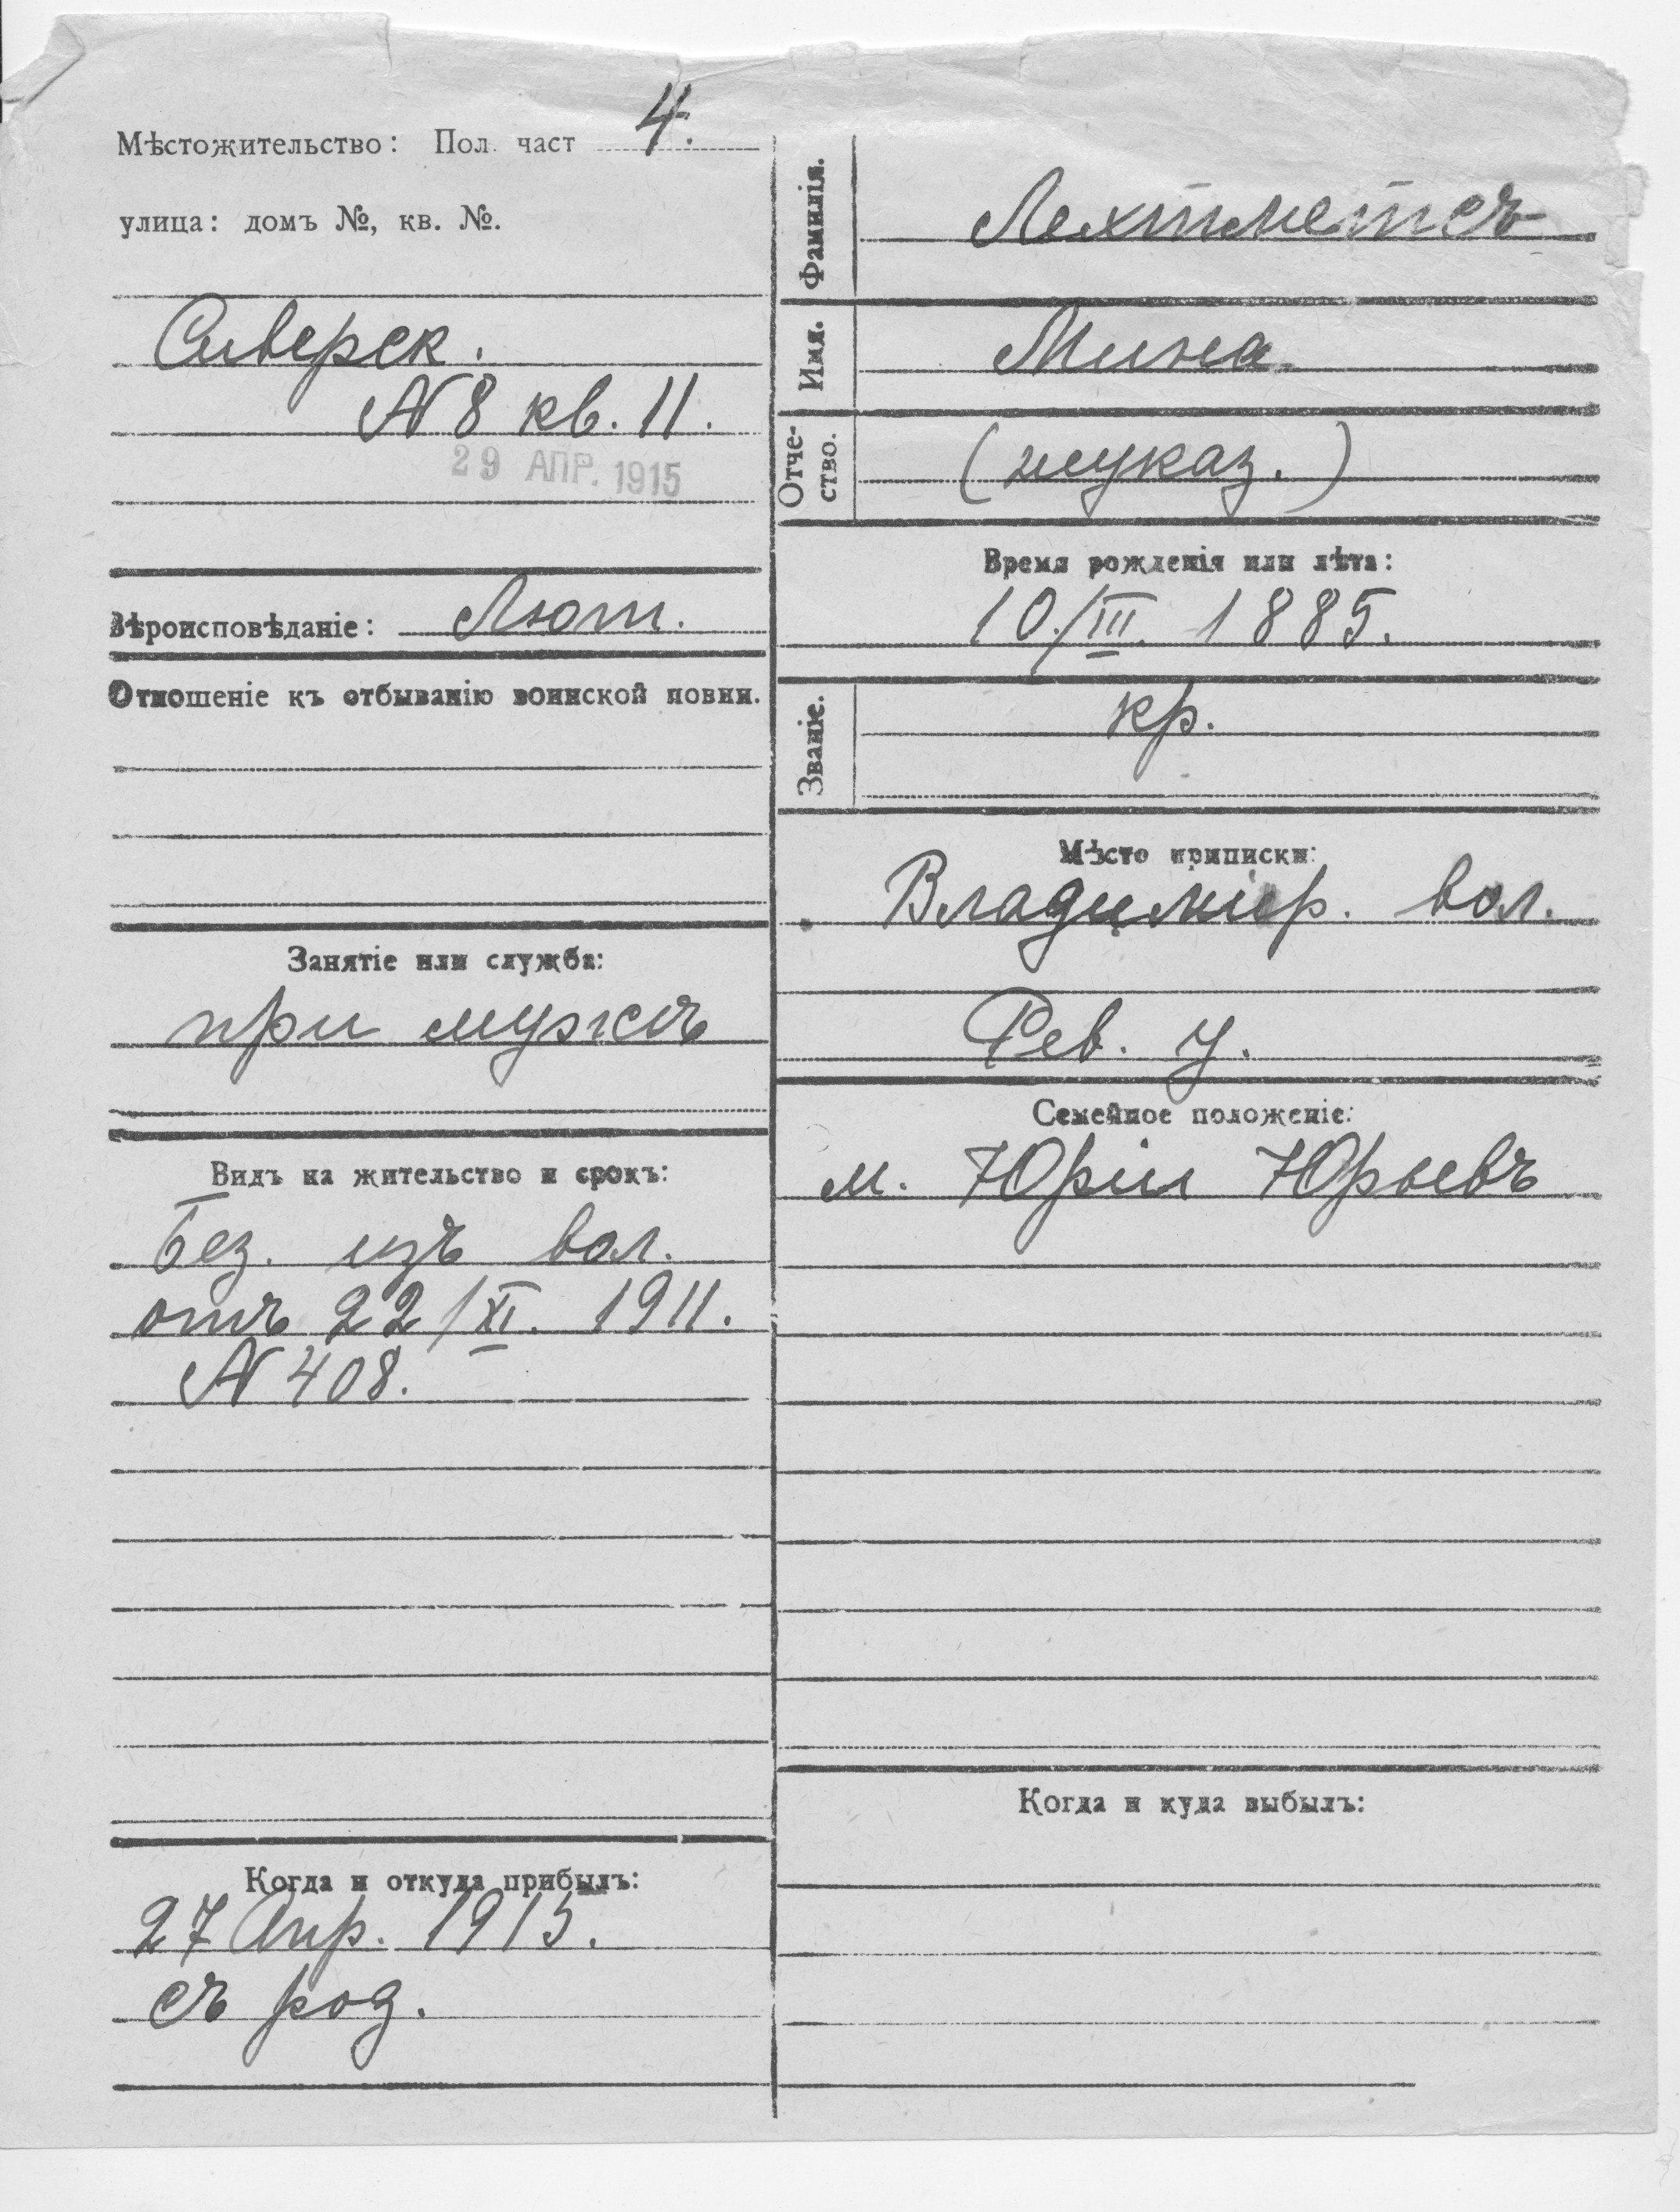 Мѣстожительство: Пол. част 4.
улица: домъ №, кв. №.
Сиверск.
№ 8 кв. 11.
29 АПР. 1915
Вѣроисповѣданіе: Лют.
Отношеніе къ отбыванію воинской повин.
Занятіе или служба:
при мужѣ
Видъ на жительство и срокъ:
Без. изъ вол.
отъ 22/XI. 1911.
№ 408.
Когда и откуда прибылъ:
27 Апр. 1915.
съ род.
Фамилія. Лехтметсъ
Имя. Мина.
Отче-
ство. (неуказ.)
Время рожденія или лѣта:
10/III. 1885.
Званіе. кр.
Мѣсто приписки:
Владимір. вол.
Рев. у.
Семейное положеніе:
м. Юрій Юрьевъ
Когда и куда выбылъ: